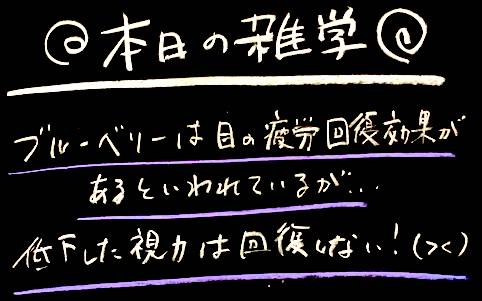 @本日の雑学@
ブルーベリーは目の疲労回復効果が
あるといわれているが...
低下した視力は回復しない!(><)